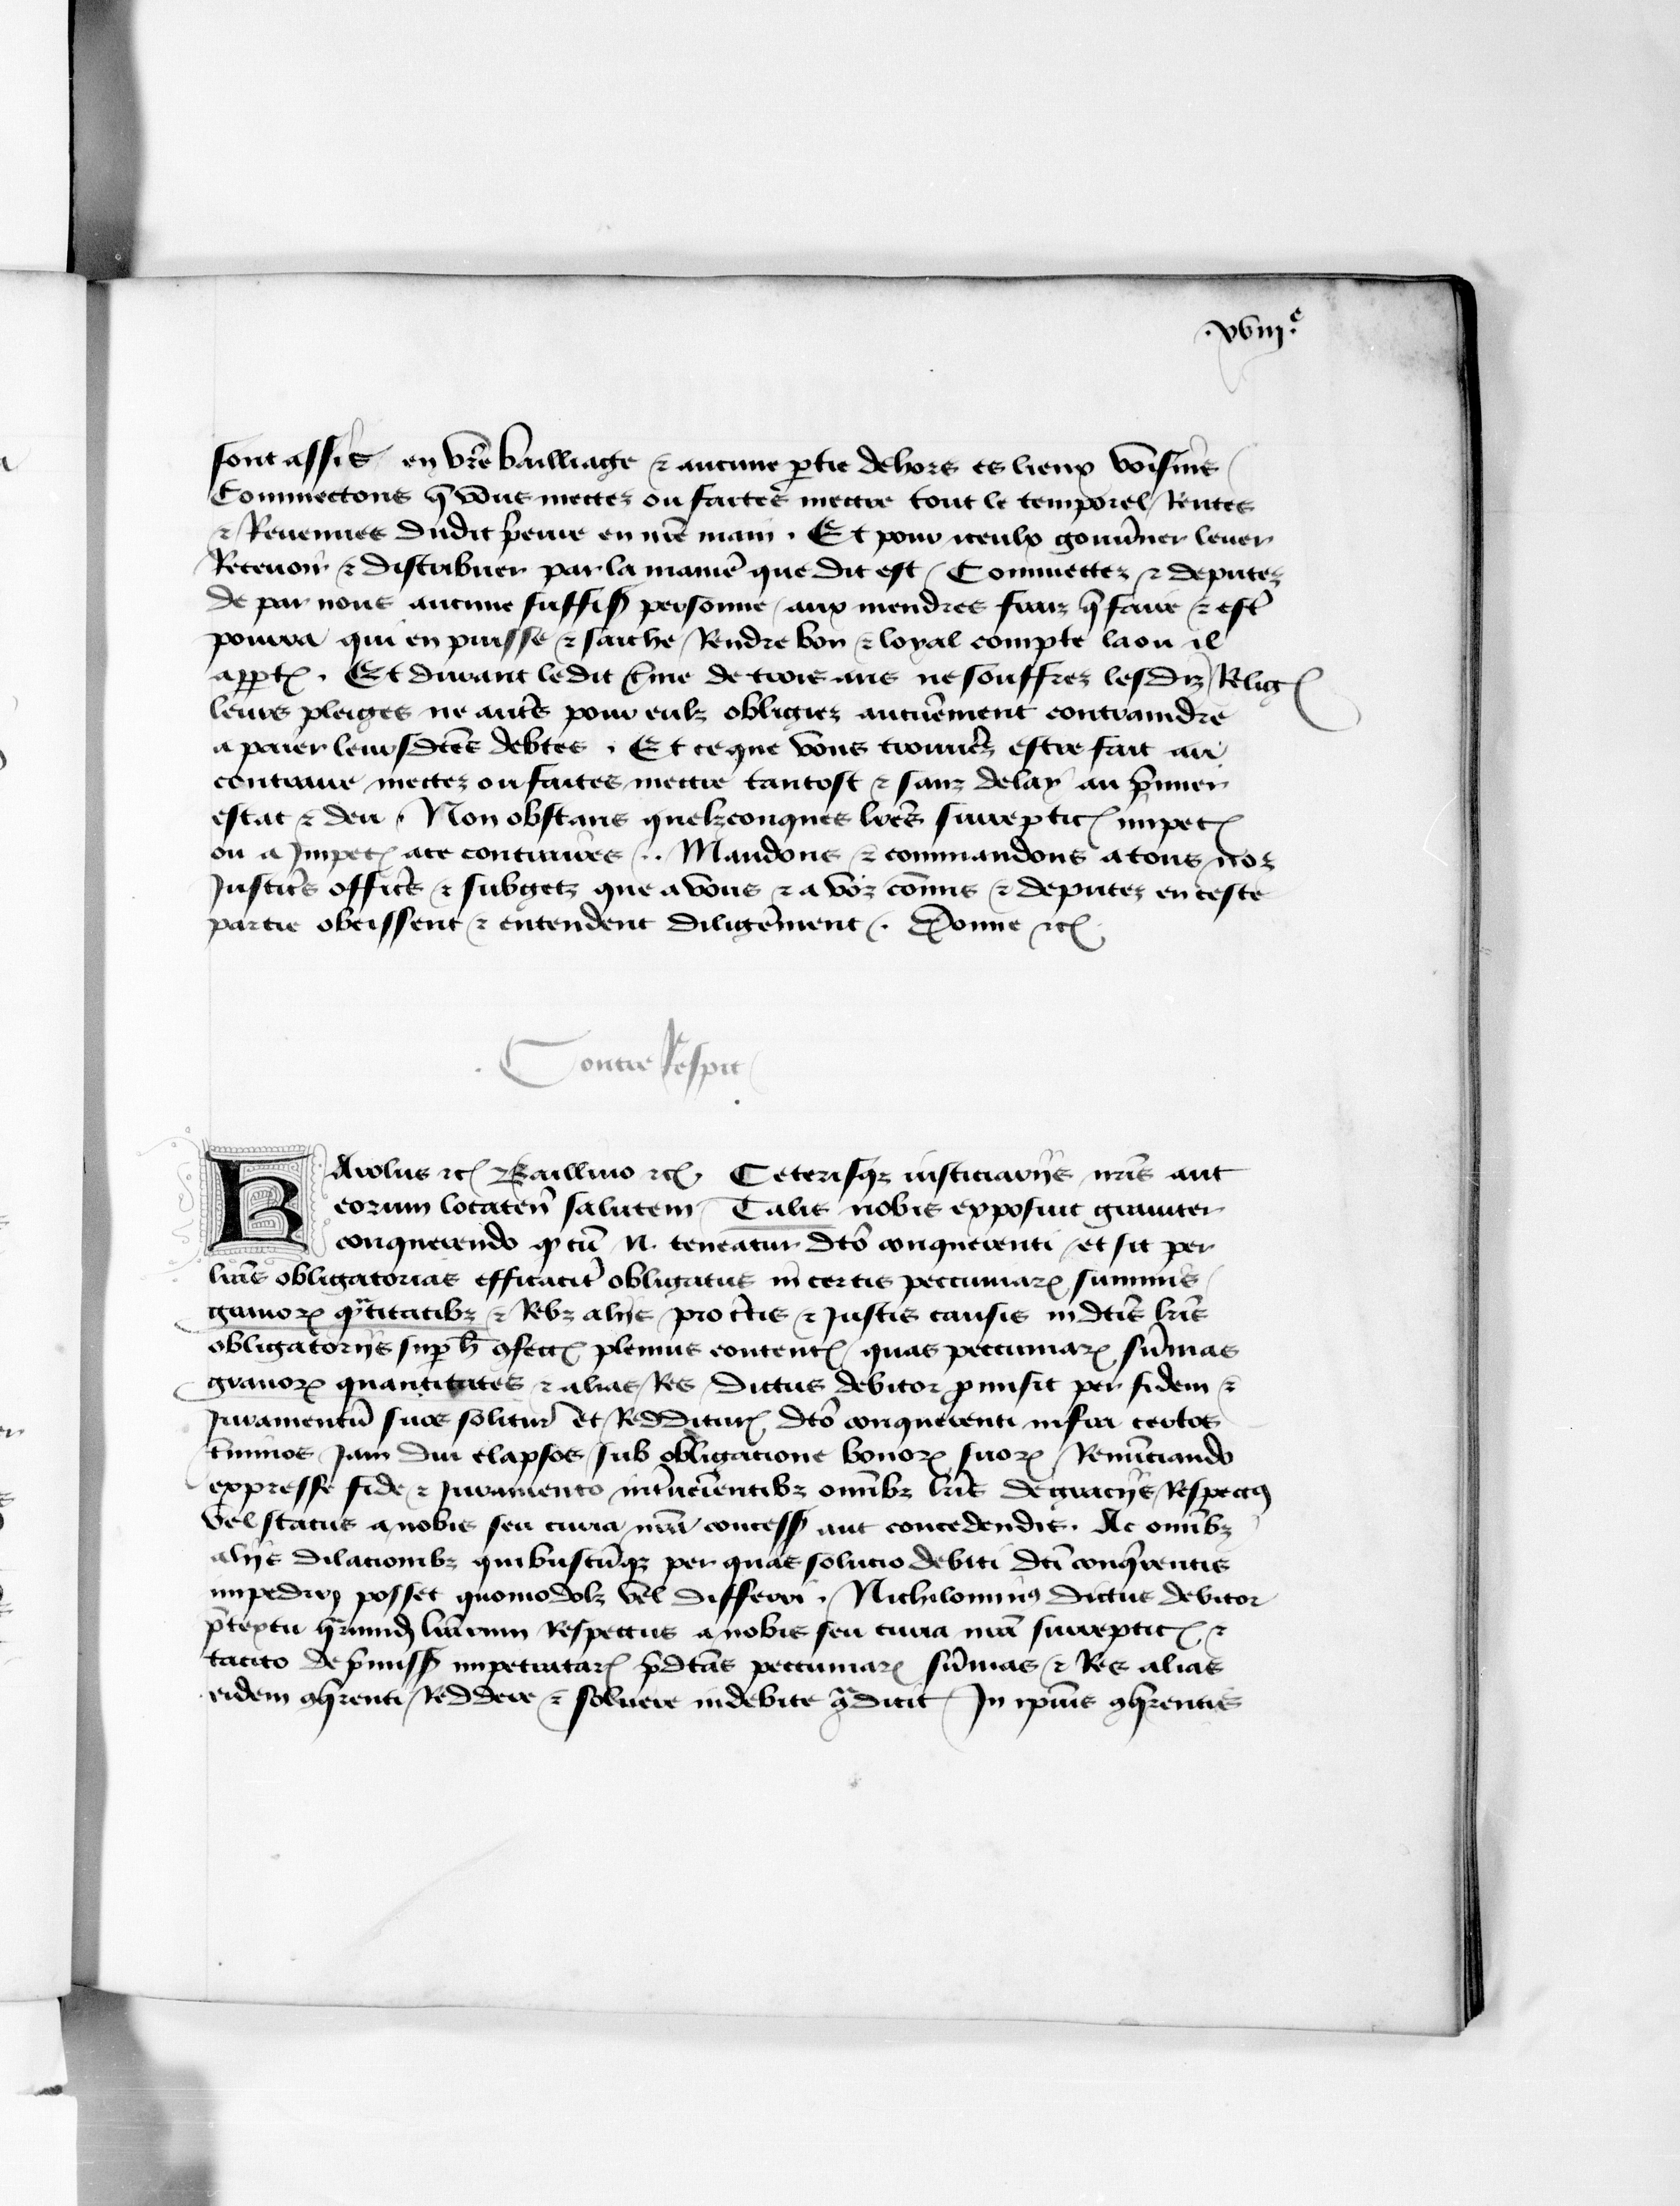 .xviij.e
sont assis en vr̃e bailliage ⁊ aucune p̱tie dehors es lieux voisins
Commectons q̃ vous mectez ou faites mectre tout le temporel Rentes
⁊ Reuenues dudit p̃eure en nr̃e main . Et pour iceulx gouũner leuer
Receuoir ⁊ distribuer par la maniẽ que dit est Commettez ⁊ deputez
de par nous aucune suffiss̃ personne aux mendres fraiz q̃ faire ⁊ estr̃
pourra qui en puisse ⁊ saiche Rendre bon ⁊ loyal compte la ou il
app̱t̃ . Et durant ledit t̃me de trois ans ne souffrez lesdiz Relig̃
leurs pleiges ne autr̃s pour eulz obligiez aucũement contraindre
a paier leursdc̃es debtes . Et ce que vous trouuer̃z estre fait au
contraire mectez ou faites mectre tantost ⁊ sanz delay au p̃mier
estat ⁊ deu . Non obstans quelzconques lr̃es surreptic̃ impet̃
ou a Impet̃ a ce contraires . . Mandons ⁊ commandons a tous noz
Justic̃s offic̃s ⁊ subgetz que a vous ⁊ a voz com̃is ⁊ deputez en ceste
partie obeissent ⁊ entendent diligẽment . Donne ⁊c̃
. Contre Respit
.
KArolus ⁊c̃ Bailliuo ⁊c̃ . Ceterisqȝ iusticiarijs nr̃is aut
eorum locaten̄ salutem Talis nobis exposuit grauiter
conquerendo qd̃ cũ N. teneatur dc̃o conquerenti et sit per
lrãs obligatorias efficacit̃ obligatus in certis peccuniaꝝ summis
granoꝝ q̃ntitatibȝ ⁊ Rebȝ alijs pro c̃tis ⁊ Justis causis in dc̃is lr̃is
obligatorijs sup̱ h̄ ꝯfect̃ plenius content̃ quas peccuniaꝝ sũmas
granoꝝ quantitates ⁊ alias Res dictus debitor p̱misit per fidem ⁊
Juramentũ sue soliturꝰ et Redditur̃ dc̃o conquerenti infra certos
t̃minos Jam diu elapsos sub obligacione bonoꝝ suoꝝ Renũciando
expresse fide ⁊ Juramento int̃ueĩentibȝ omĩbȝ lr̃is de gracijs Respectꝰ
vel status a nobis seu curia nr̃a concess̃ aut concedendis . Ac omĩbȝ
alijs dilacionibȝ quibuscũqȝ per quas solucio debiti dc̃i conq̃rentis
impediri posset quomodolȝ vel differri . Nichilominꝰ dictus debitor
p̃textu q̃rumd̃ lrãrum Respectus a nobis seu curia nr̃a surreptic̃ ⁊
tacito de p̃miss̃ impetrataꝝ p̃dc̃as peccuniaꝝ sũmas ⁊ Res alias
eidem ꝯq̃renti Reddere ⁊ soluere indebite ꝯ̃dicit In ip̃ius ꝯq̃rentis